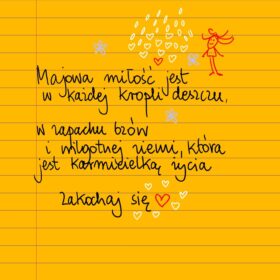 Majowa miłość jest
w każdej kropli deszczu,
w zapachu bzów
i wilgotnej ziemi, która
jest karmicielką życia
zakochaj się